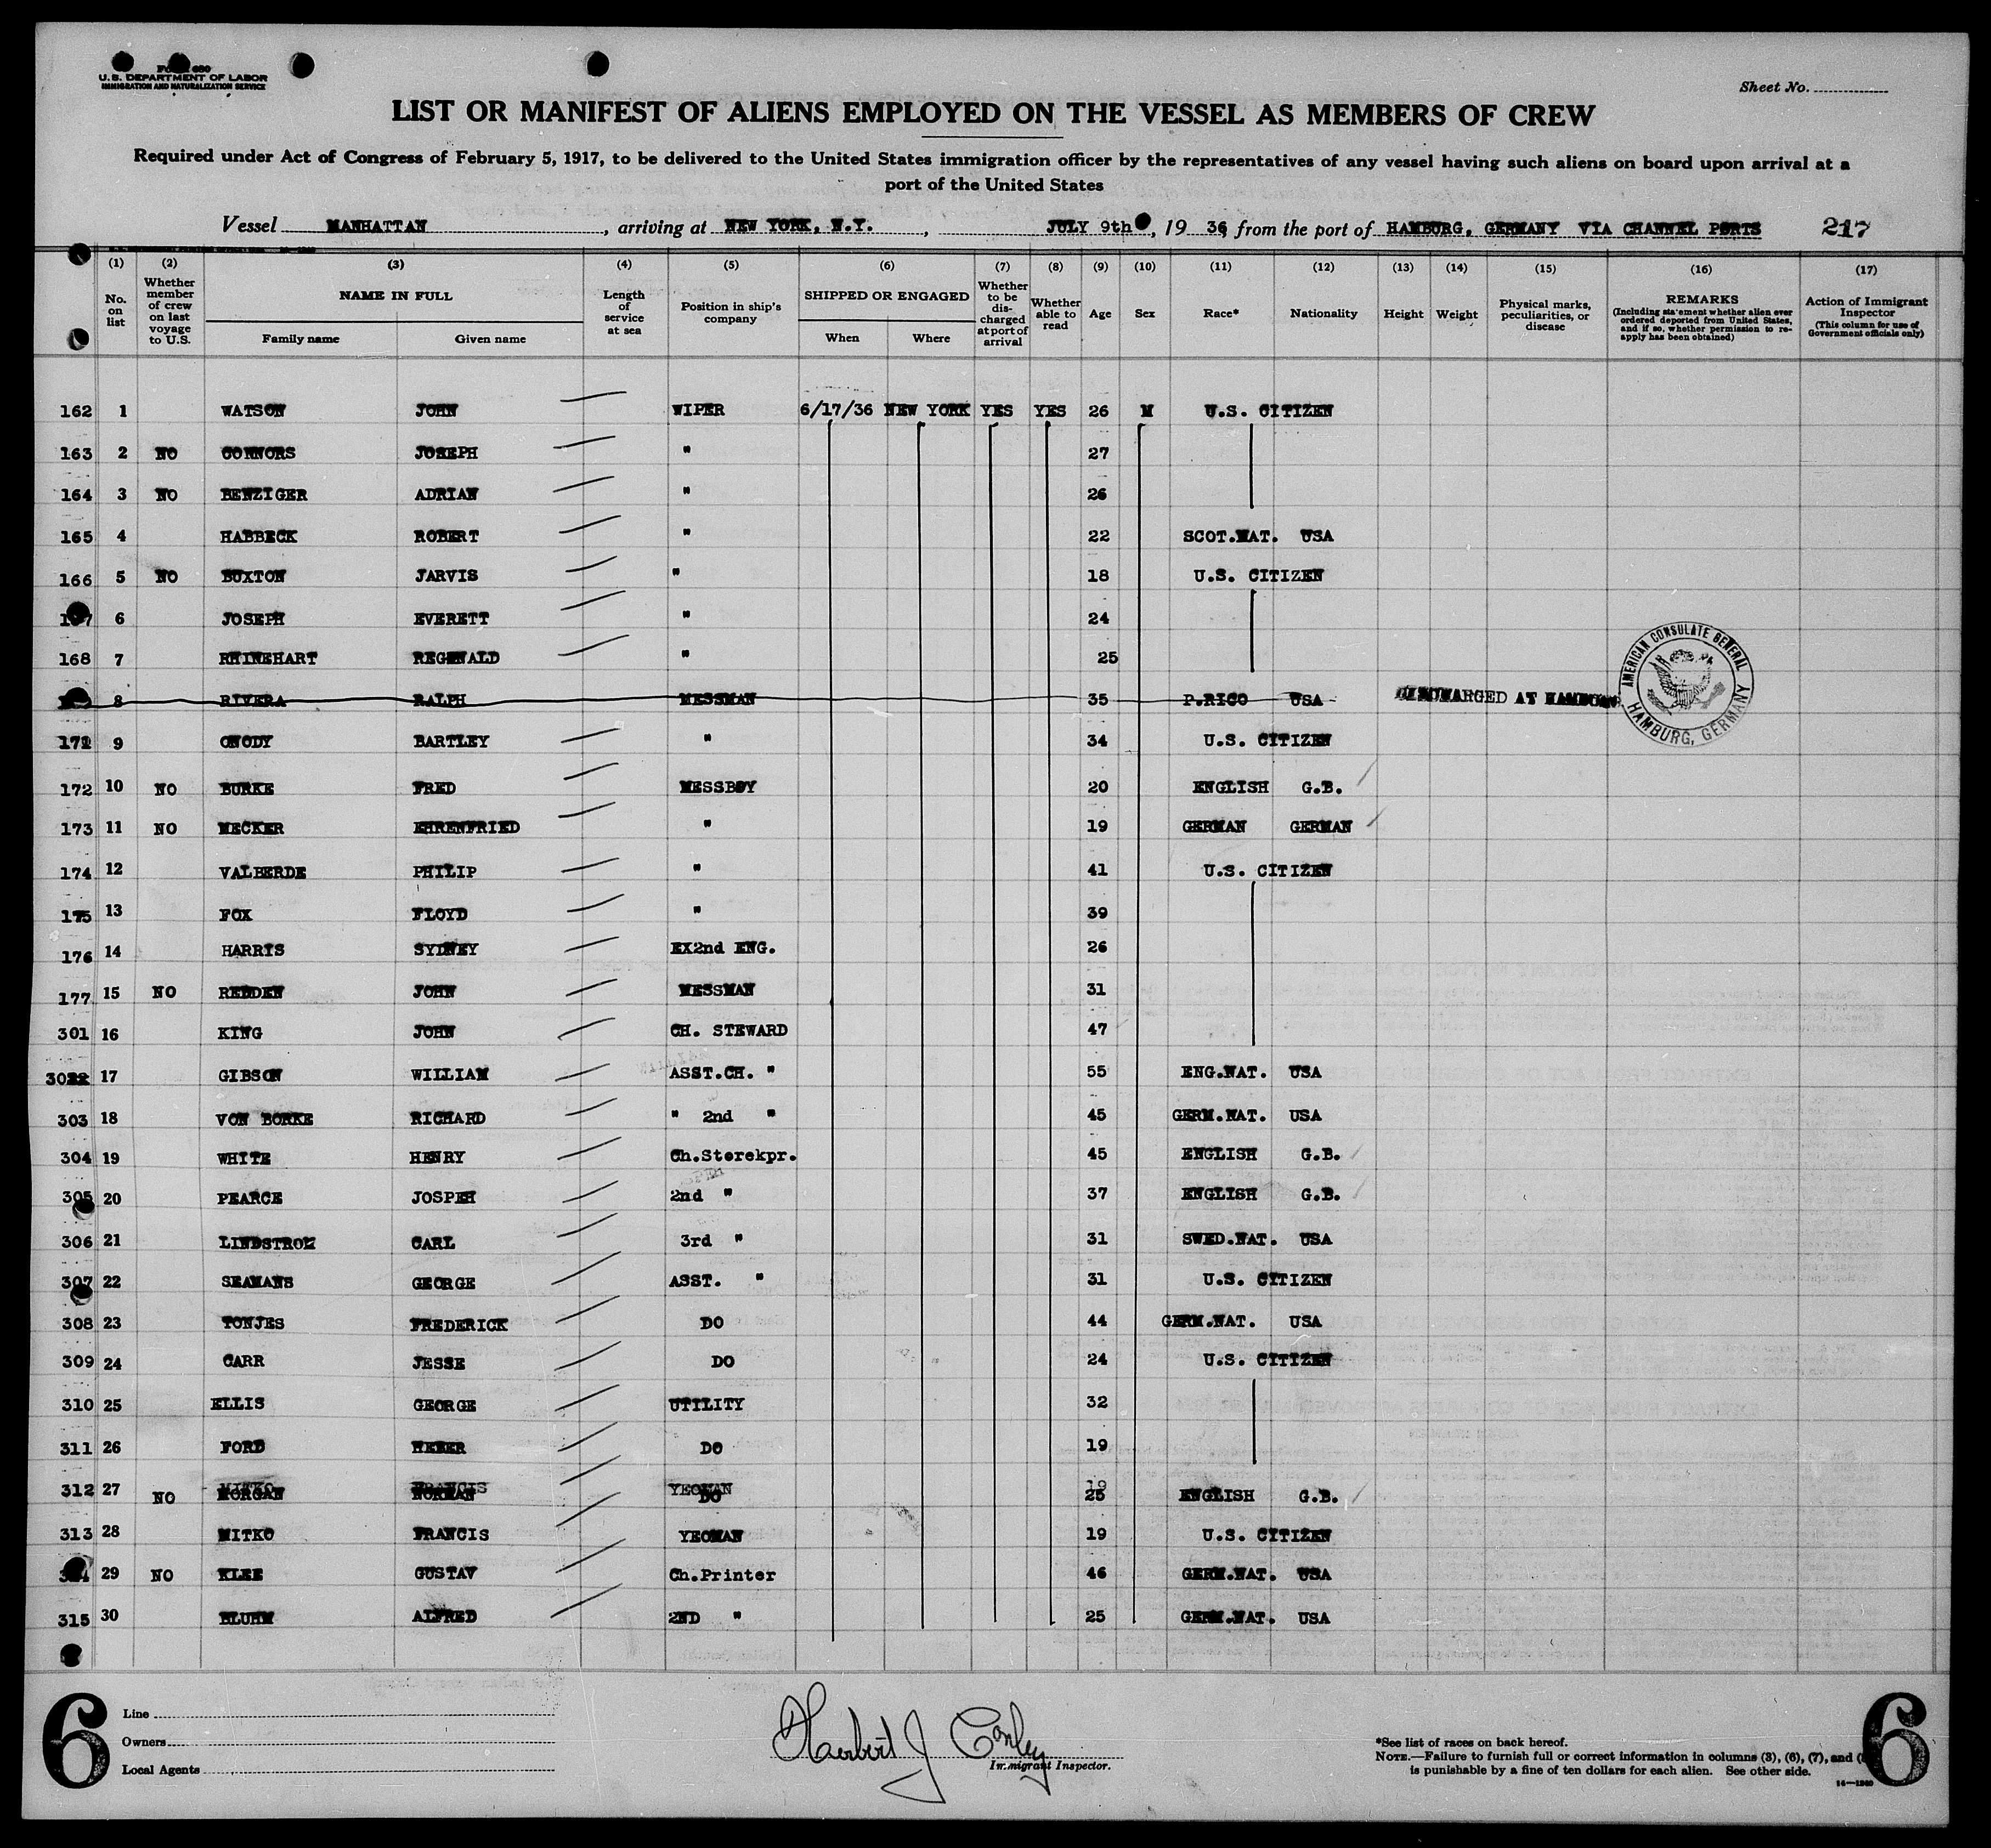 U.S. DEPARTMENT OF LABOR
IMMIGRATION AND NATURALIZATION SERVICE
Sheet No.
LIST OR MANIFEST OF ALIENS EMPLOYED ON THE VESSEL AS MEMBERS OF CREW
Required under Act of Congress of February 5, 1917, to be delivered to the United States immigration officer by the representatives of any vessel having such aliens on board upon arrival at a
port of the United States
Vessel MANHATTAN, arriving at NEW YORK, N.Y., JULY 9th, 1936 from the port of HAMBURG, GERMANY VIA CHANNEL PORTS 217
(1) (2) (3) (4) (5) (6) (7) (8) (9) (10) (11) (12) (13) (14) (15) (16) (17)
No. on list
Whether member of crew on last voyage to U.S.
NAME IN FULL
Family name Given name
Length of service at sea
Position in ship's company
SHIPPED OR ENGAGED
When Where
Whether to be discharged at port of arrival
Whether able to read
Age Sex Race* Nationality Height Weight
Physical marks, peculiarities, or disease
REMARKS
(Including statement whether alien ever ordered deported from United States, and if so, whether permission to re-apply has been obtained)
Action of Immigrant Inspector
(This column for use of Government officials only)
162 1 WATSON JOHN WIPER 6/17/36 NEW YORK YES YES 26 M U.S. CITIZEN
163 2 NO CONNORS JOSEPH " 27
164 3 NO BENZIGER ADRIAN " 26
165 4 HABBECK ROBERT " 22 SCOT.NAT. USA
166 5 NO BUXTON JARVIS " 18 U.S. CITIZEN
6 JOSEPH EVERETT " 24
168 7 RHINEHART REGINALD " 25
8 RIVERA RALPH MESSMAN 35 P.RICO USA DISCHARGED AT HAMBURG
AMERICAN CONSULATE GENERAL
HAMBURG, GERMANY
171 9 CNODY BARTLEY " 34 U.S. CITIZEN
172 10 NO BURKE FRED MESSBOY 20 ENGLISH G.B.
173 11 NO MECKER EHRENFRIED " 19 GERMAN GERMAN
174 12 VALBERDE PHILIP " 41 U.S. CITIZEN
175 13 FOX FLOYD " 39
176 14 HARRIS SYDNEY EX2nd ENG. 26
177 15 NO REDDEN JOHN MESSMAN 31
301 16 KING JOHN CH. STEWARD 47
302 17 GIBSON WILLIAM ASST.CH. " 55 ENG.NAT. USA
303 18 VON BORKE RICHARD " 2nd " 45 GERM.NAT. USA
304 19 WHITE HENRY Ch.Storekpr. 45 ENGLISH G.B.
305 20 PEARCE JOSPEH 2nd " 37 ENGLISH G.B.
306 21 LINDSTROM CARL 3rd " 31 SWED.NAT. USA
307 22 SEAMANS GEORGE ASST. " 31 U.S. CITIZEN
308 23 TONJES FREDERICK DO 44 GERM.NAT. USA
309 24 CARR JESSE DO 24 U.S. CITIZEN
310 25 ELLIS GEORGE UTILITY 32
311 26 FORD HEBER DO 19
312 27 NO MORGAN NORMAN DO 25 ENGLISH G.B.
313 28 MITKO FRANCIS YEOMAN 19 U.S. CITIZEN
29 NO KLEE GUSTAV Ch.Printer 46 GERM.NAT. USA
315 30 BLUHM ALFRED 2ND " 25 GERM.NAT. USA
6
Line
Owners
Local Agents
Herbert J Conley
Immigrant Inspector.
*See list of races on back hereof.
NOTE.—Failure to furnish full or correct information in columns (3), (6), (7), and
is punishable by a fine of ten dollars for each alien. See other side.
6